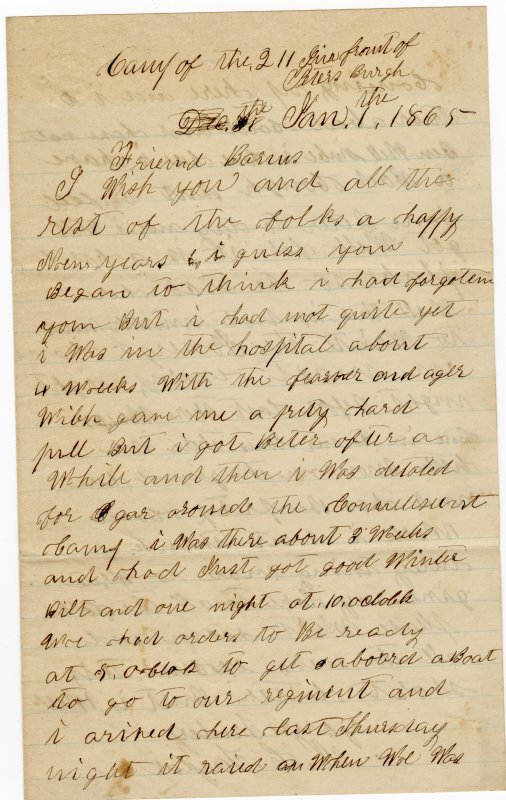 Camp of the 211 in front of
Peters Burgh
the Jan. the 1, 1865
Friend Barns
I Wish you and all the
rest of the folks a happy
New years & i guess you
Began to think i had forgoten
you But i had not quite yet
i Was in the hospital about
4 Weeks With the feaver and ager
Wibh gave me a prity hard
pull But i got Beter after a
While and then i Was detaled
for gar around the
Camp i Was there about 8 Weeks
and had Just got good Winter
Bilt and one night at 10 oclock
Woe had orders to Be ready
at 5. oclok to get aboard a Boat
to go to our regiment and
i arived here last Thursday
night it raied an When Woe Was